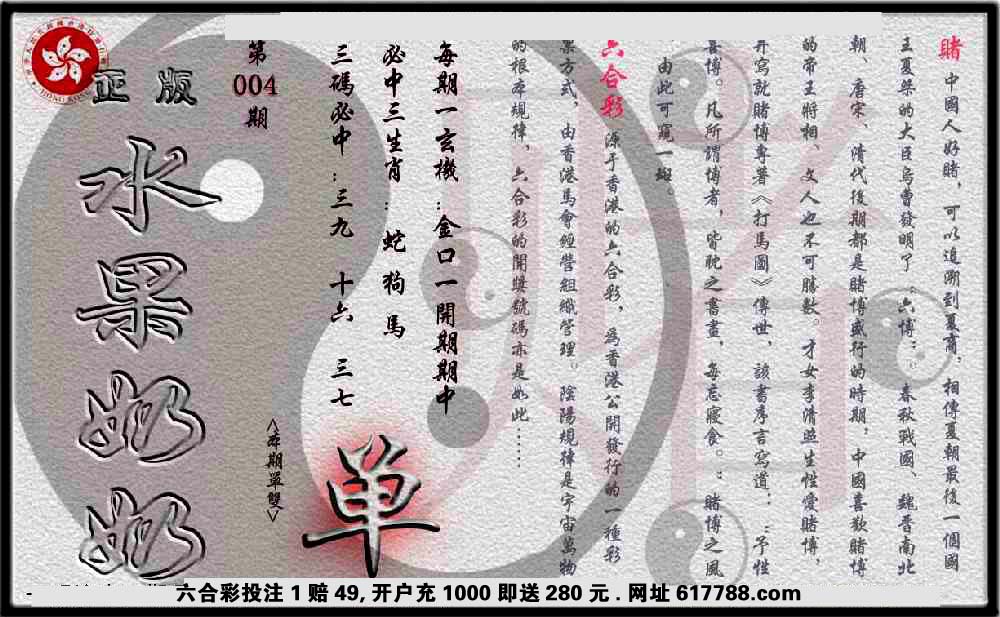 賭 中國人好賭，可以追溯到夏商。相傳夏朝最後一個國
王夏桀的大臣烏曹發明了“六博”。春秋戰國、魏晉南北
朝、唐宋、清代後期都是賭博盛行的時期，中國喜歡賭博
的帝王將相、文人也不可勝數。才女李清照生性愛賭博，
并寫就賭博專著《打馬圖》傳世，該書序言寫道：“予性
喜博。凡所謂博者，皆耽之晝晝，每忘寢食。”賭博之風
由此可窺一斑。
六合彩 源于香港的六合彩，爲香港公開發行的一種彩
票方式，由香港馬會經營組織管理。陰陽規律是宇宙萬物
的根本規律，六合彩的開獎號碼亦是如此……
每期一玄機：金口一開期期中
必中三生肖：蛇狗馬
三碼必中：三九 十六 三七
第
004
期
<本期單雙>
单
正版
水果奶奶
HONG KONG
六合彩投注1赔49,开户充1000即送280元.网址617788.com